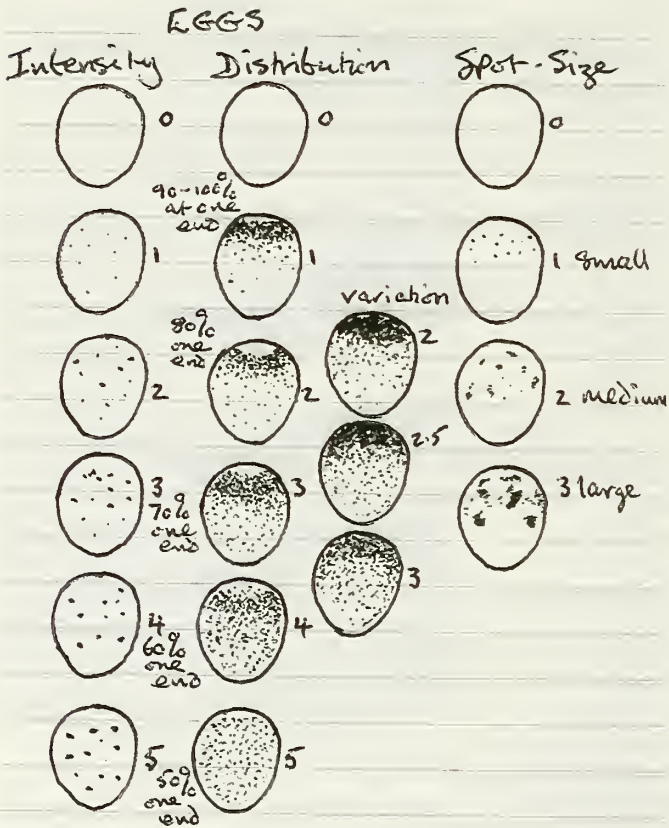 EGGS
Intensity Distribution Spot-Size
0 0 0
90-100%
at one
end
1 1 1 small
variation
80%
one
end
2 2 2 2 medium
2.5
3 3 3 large
70%
one
end
3
4 4
60%
one
end
5 5
50%
one
end